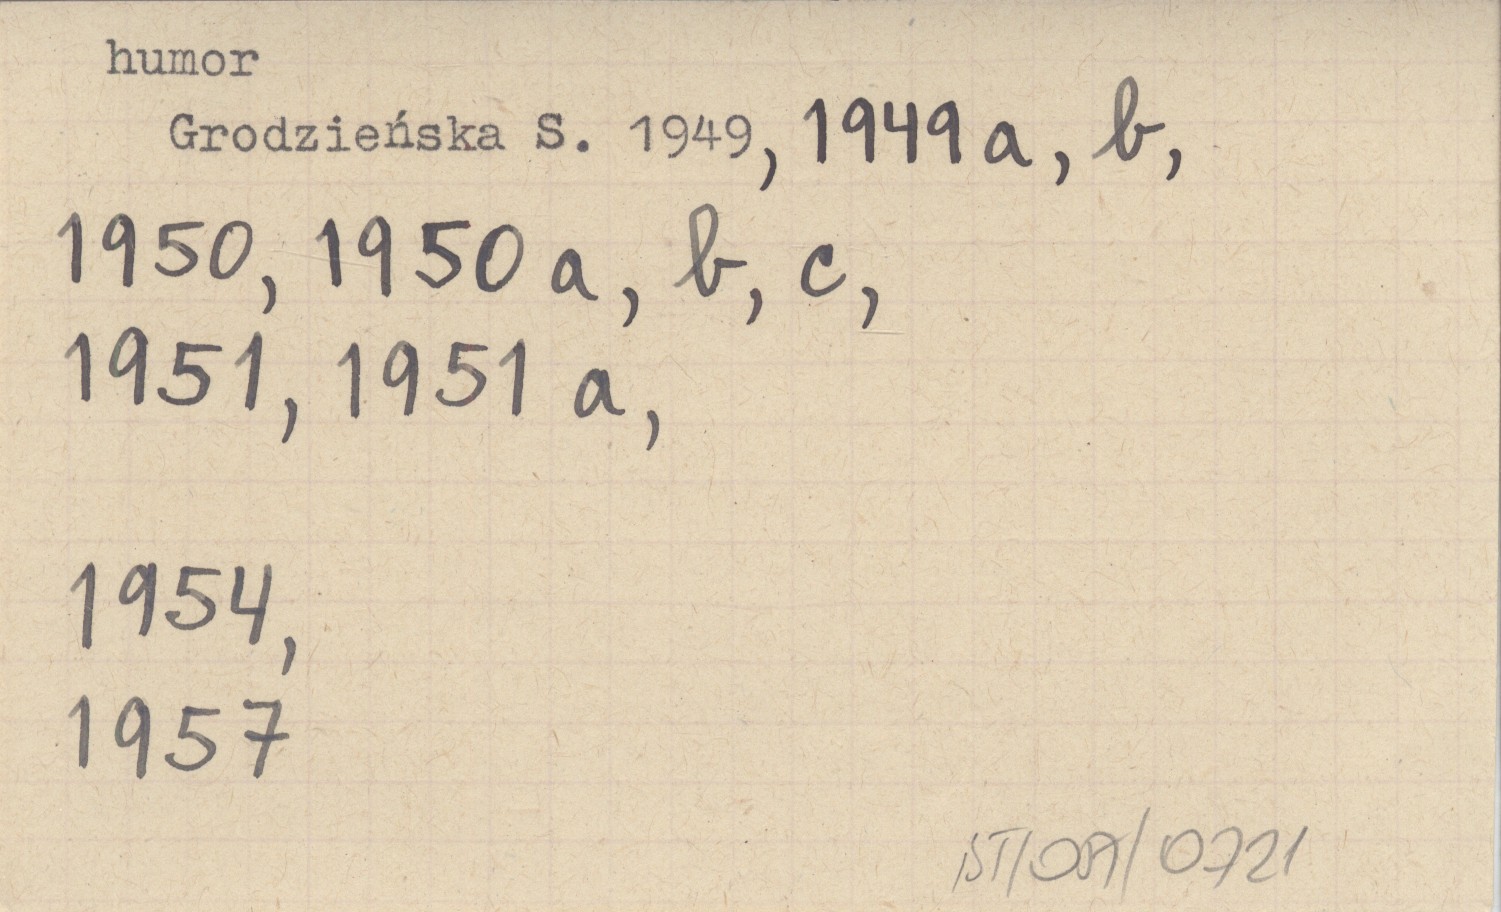 humor
Grodzieńska S. 1949, 1949a, b,
1950, 1950 a, b, c,
1951, 1951 a,
1954,
1957
0721